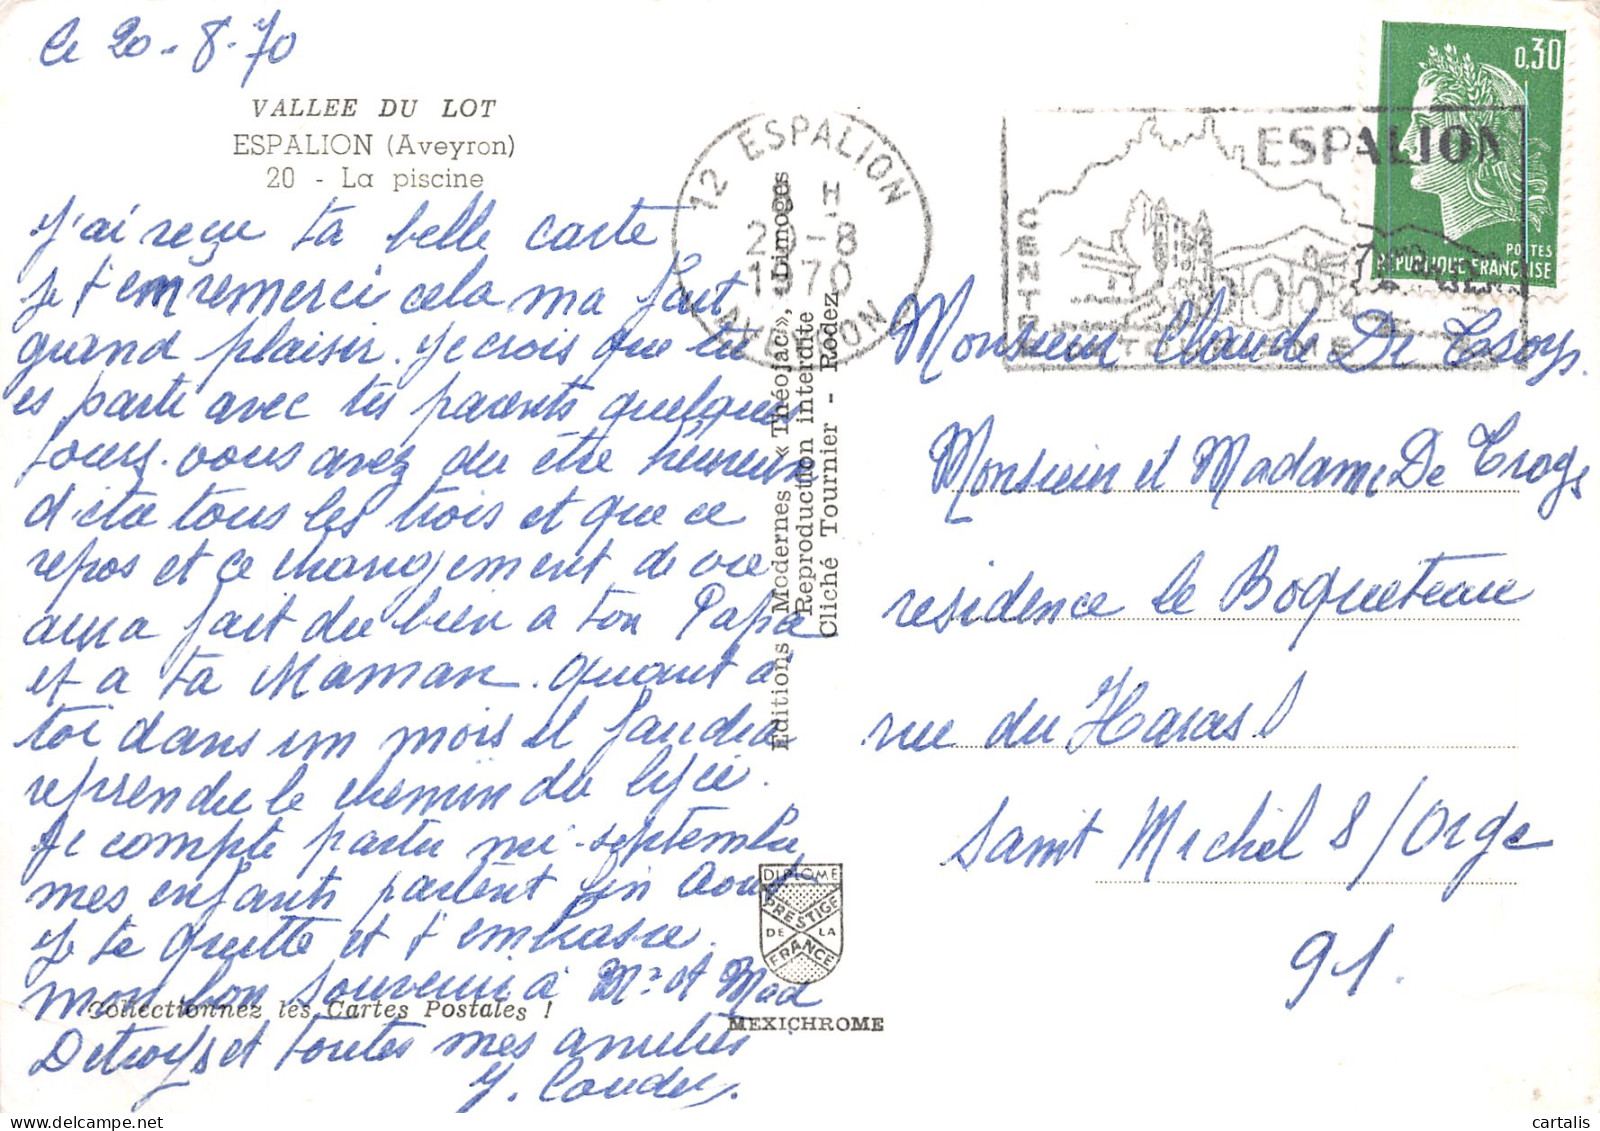 Le 20-8-70
VALLEE DU LOT
ESPALION (Aveyron)
20 - La piscine
J'ai reçue ta belle carte
je t'en remerci cela ma fait
grand plaisir. Je crois que tu
es parti avec tes parents quelques
jours. vous avez du être heureux
d'etre tous les trois et que ce
repos et ce changement de vie
aura fait du bien a ton Papa
et a ta Maman. quant a
toi dans un mois il faudra
reprendre le chemin du lycé.
Je compte partir mi-septembre
mes enfants partent fin Aout
Je te quitte et t'embrasse.
mon bon souvenir à Mr et Mad
Detroys et toutes mes amitiés
Y. Couder.
Collectionnez les Cartes Postales !
Editions Modernes « Théojac», Limoges
Reproduction interdite
Cliché Tournier - Rodez
DIPLOME
PRESTIGE
DE LA
FRANCE
MEXICHROME
12 ESPALION
H
-8
1970
AVEYRON
ESPALION
CENTRE
TOURISME
0,30
POSTES
REPUBLIQUE FRANÇAISE
Monsieur Claude De Troys.
Monsieur et Madame De Troys
residence le Boqueteau
rue du Haras
Saint Michel S/Orge
91.
cartalis